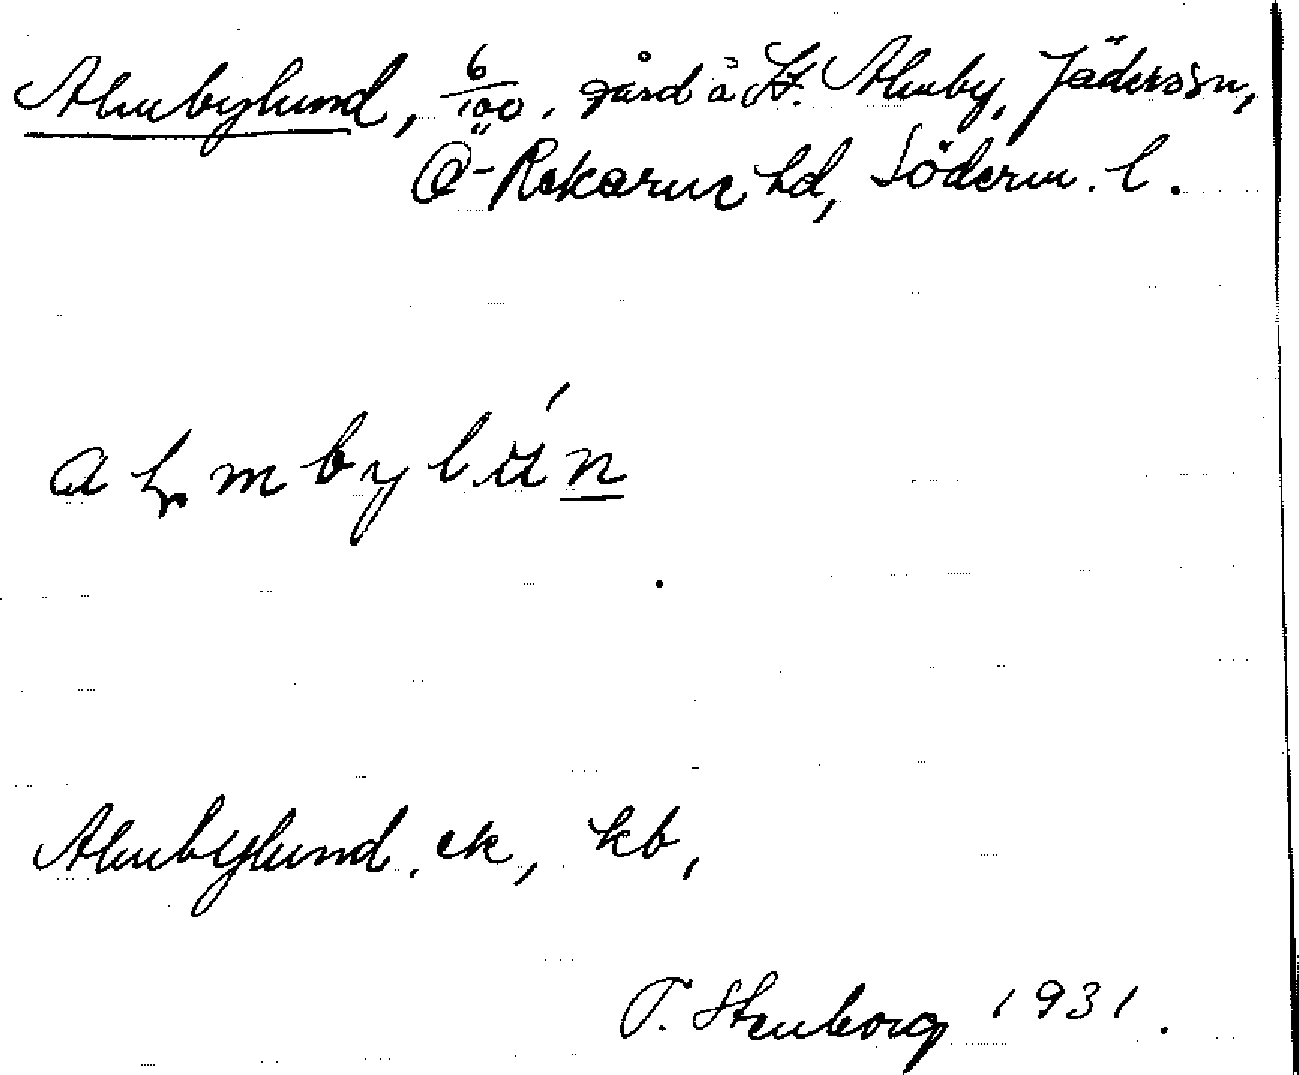 Almbylund, 6/100, gård å St. Almby, Jäders sn,
Ö-Rekarne hd, Söderm. l.
Almbylund, ek, kb,
T. Stenborg 1931.